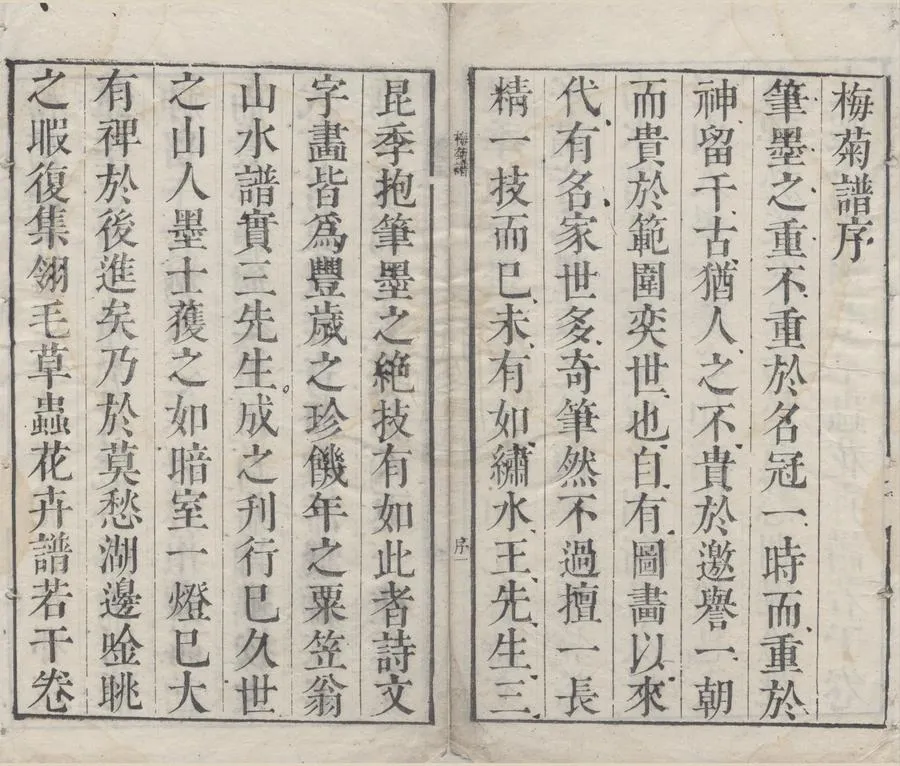 梅菊譜序
筆墨之重不重於名冠一時而重於
神留千古猶人之不貴於邀譽一朝
而貴於範圍奕世也自有圖畫以來
代有名家世多奇筆然不過擅一長
精一技而已未有如繡水王先生三
梅菊譜
序一
昆季抱筆墨之絶技有如此者詩文
字畫皆爲豐歲之珍饑年之粟笠翁
山水譜實三先生成之刊行巳久世
之山人墨士獲之如暗室一燈巳大
有裨於後進矣乃於莫愁湖邊唫眺
之暇復集翎毛草蟲花卉譜若干卷